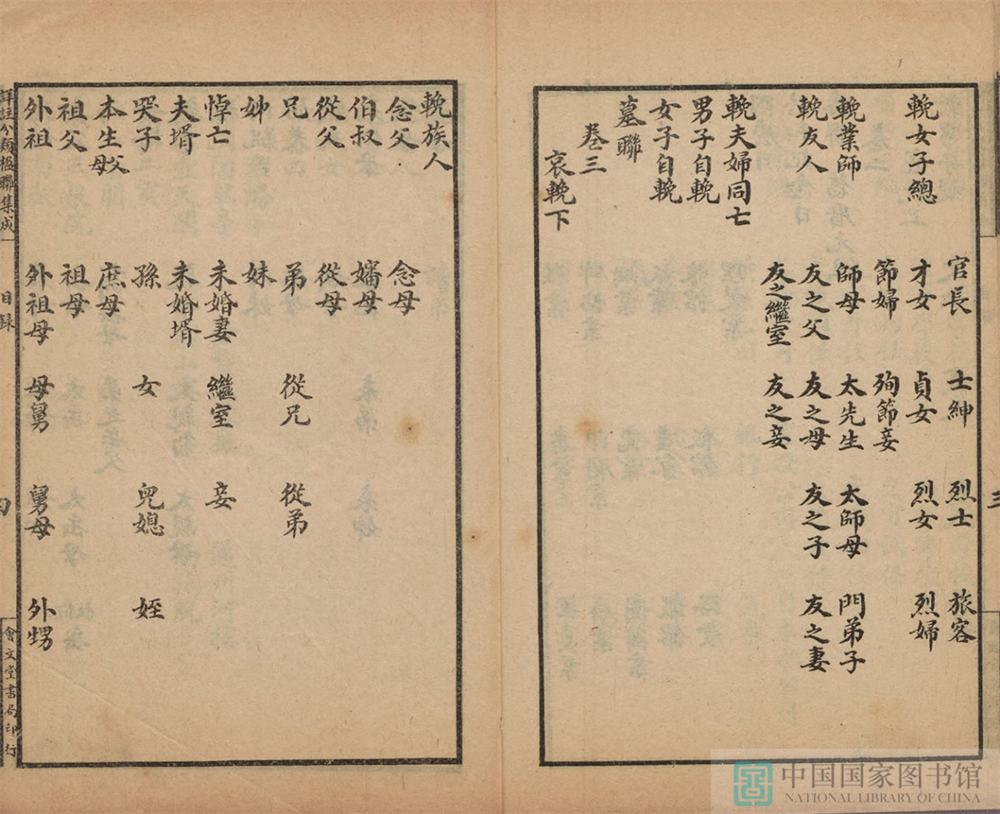 官長 士紳 烈士 旅客
輓女子總 才女 貞女 烈女 烈婦
節婦 殉節妾
輓業師 師母 太先生 太師母 門弟子
輓友人 友之父 友之母 友之子 友之妻
友之繼室 友之妾
輓夫婦同亡
男子自輓
女子自輓
墓聯
卷三
哀輓下
三
輓族人
念父 念母
伯叔 嬸母
從父 從母
兄 弟 從兄 從弟
姊 妹
悼亡 未婚妻 繼室 妾
夫壻 未婚壻
哭子 孫 女 兒媳 姪
本生父母 庶母
祖父 祖母
外祖 外祖母 母舅 舅母 外甥
詳註分類楹聯集成 目錄
會文堂書局印行
中国国家图书馆
NATIONAL LIBRARY OF CHINA